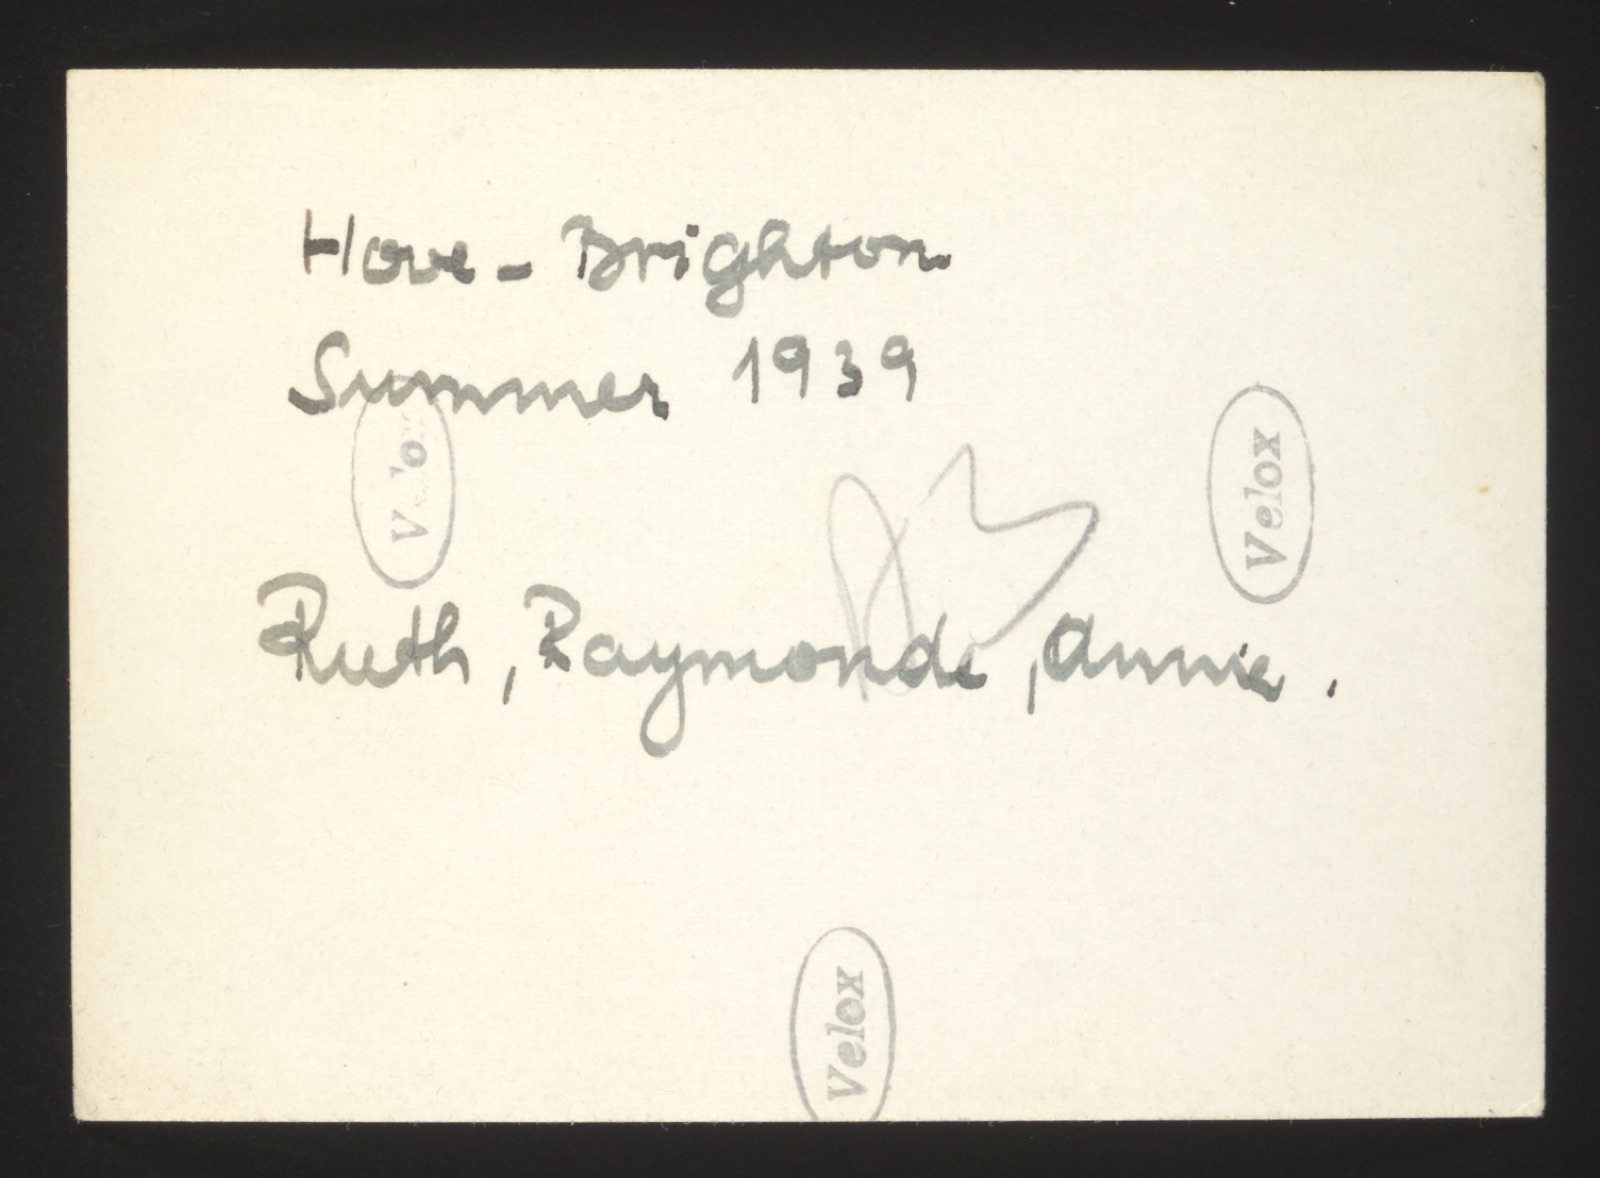 Hove - Brighton
Summer 1939
Velox
Velox
Ruth, Raymonde, Annie.
Velox